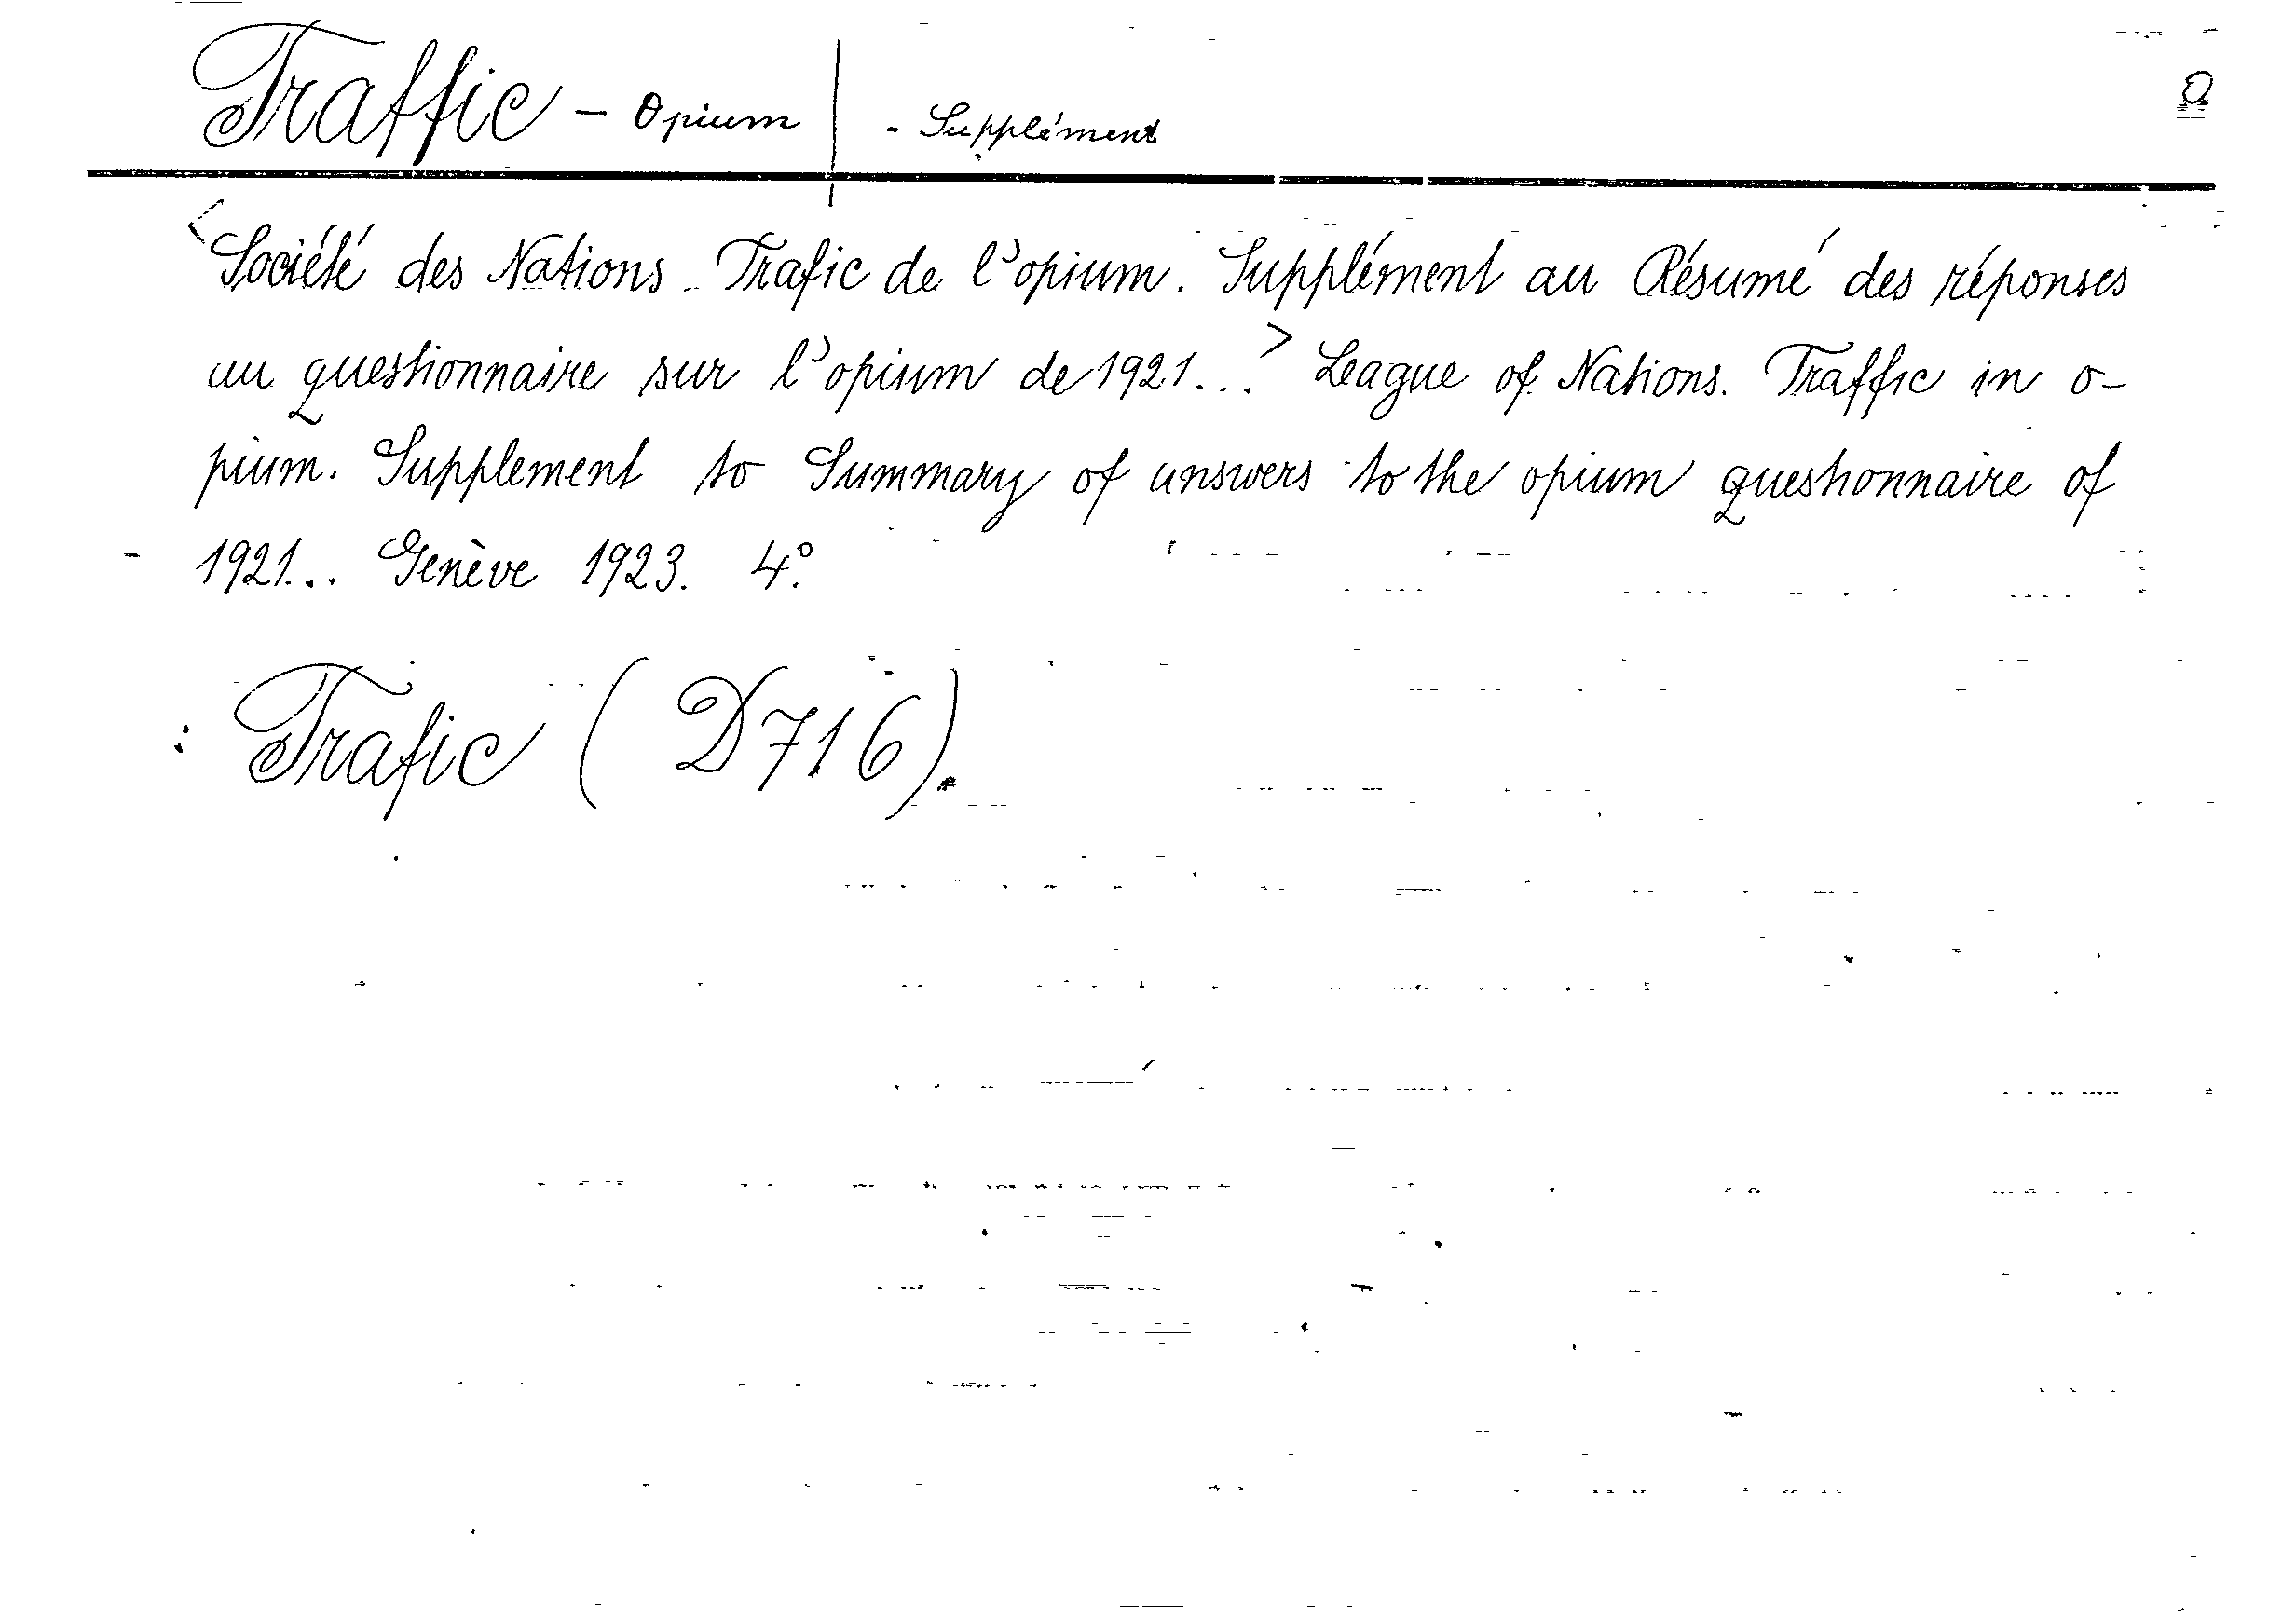 Traffic – Opium | - Supplément
<Société des Nations. Trafic de l'opium. Supplément au Résumé des réponses
au questionnaire sur l'opium de 1921...> League of Nations. Traffic in o-
pium. Supplement to Summary of answers to the opium questionnaire of
1921... Genève 1923. 4º.
Trafic (D716).